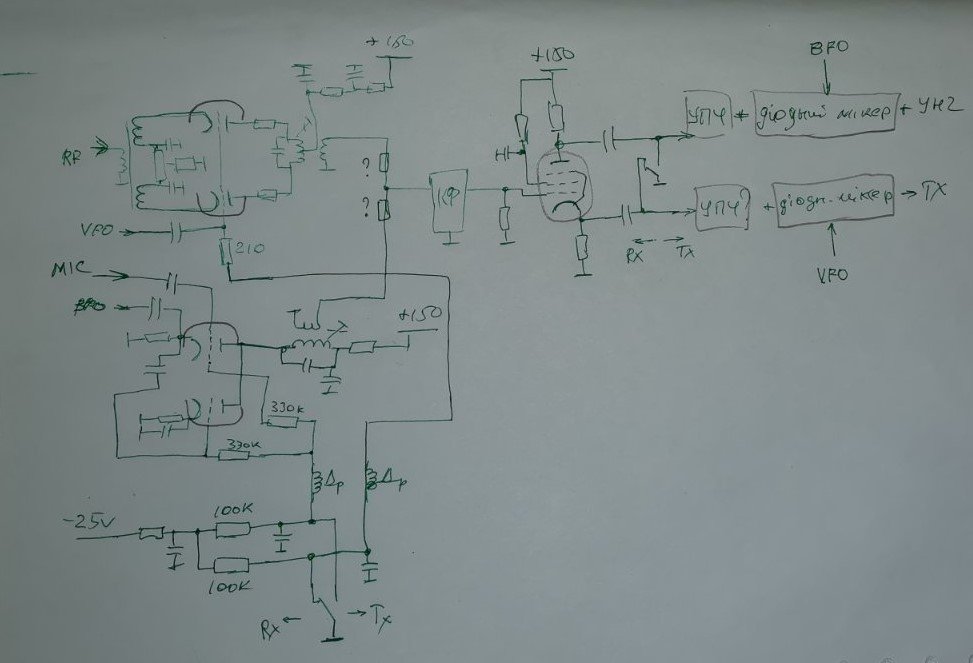 +150
+150
BFO
УПЧ + діодний мікер + УНЧ
RF
?
?
КФ
УПЧ? + діодн. мікер → TX
VFO
210
RX TX
VFO
MIC
BFO
+150
330K
330K
Др Др
-25V
100K
100K
Rx ← → Tx